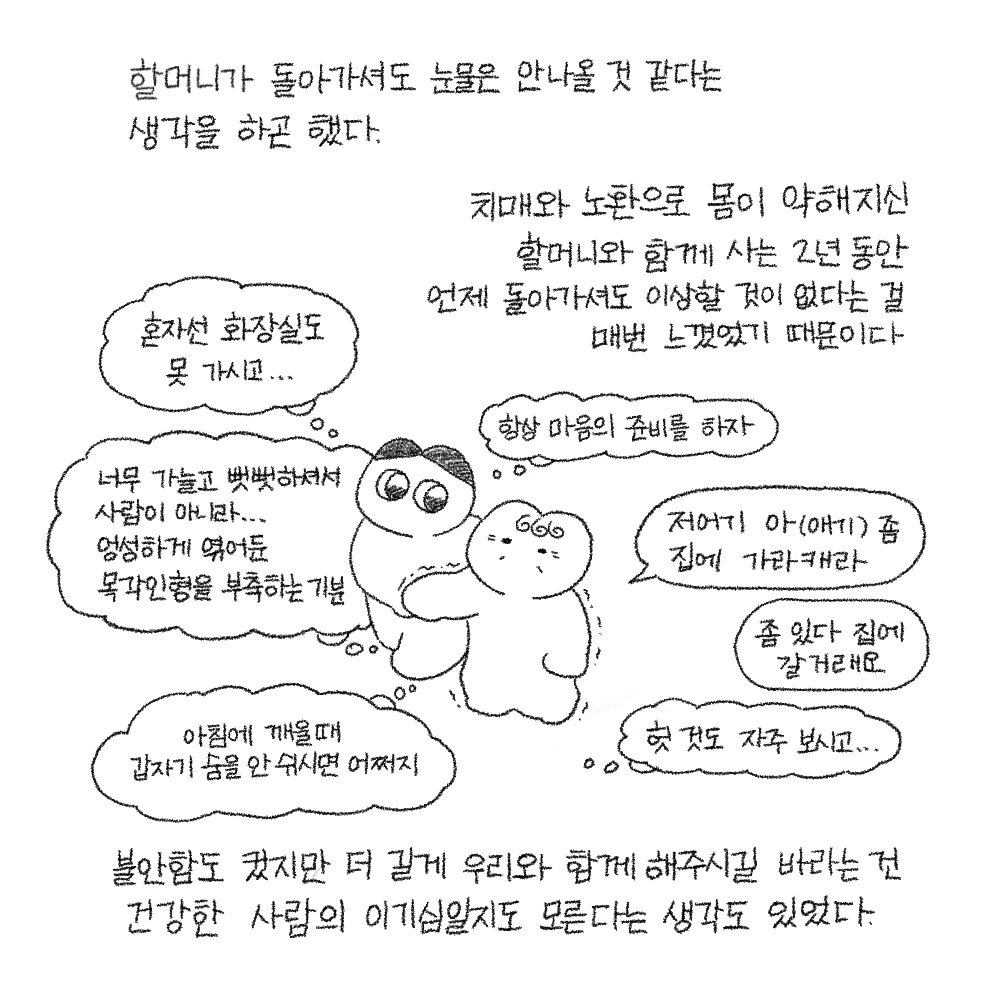 할머니가 돌아가셔도 눈물은 안나올 것 같다는
생각을 하곤 했다.
치매와 노환으로 몸이 약해지신
할머니와 함께 사는 2년 동안
언제 돌아가셔도 이상할 것이 없다는 걸
매번 느꼈었기 때문이다
혼자선 화장실도
못 가시고...
항상 마음의 준비를 하자
너무 가늘고 뻣뻣하셔서
사람이 아니라...
엉성하게 엮어둔
목각인형을 부축하는 기분
저어기 아(애기) 좀
집에 가라캐라
좀 있다 집에
갈거래요
아침에 깨울때
갑자기 숨을 안 쉬시면 어쩌지
헛 것도 자주 보시고...
불안함도 컸지만 더 길게 우리와 함께 해주시길 바라는 건
건강한 사람의 이기심일지도 모른다는 생각도 있었다.